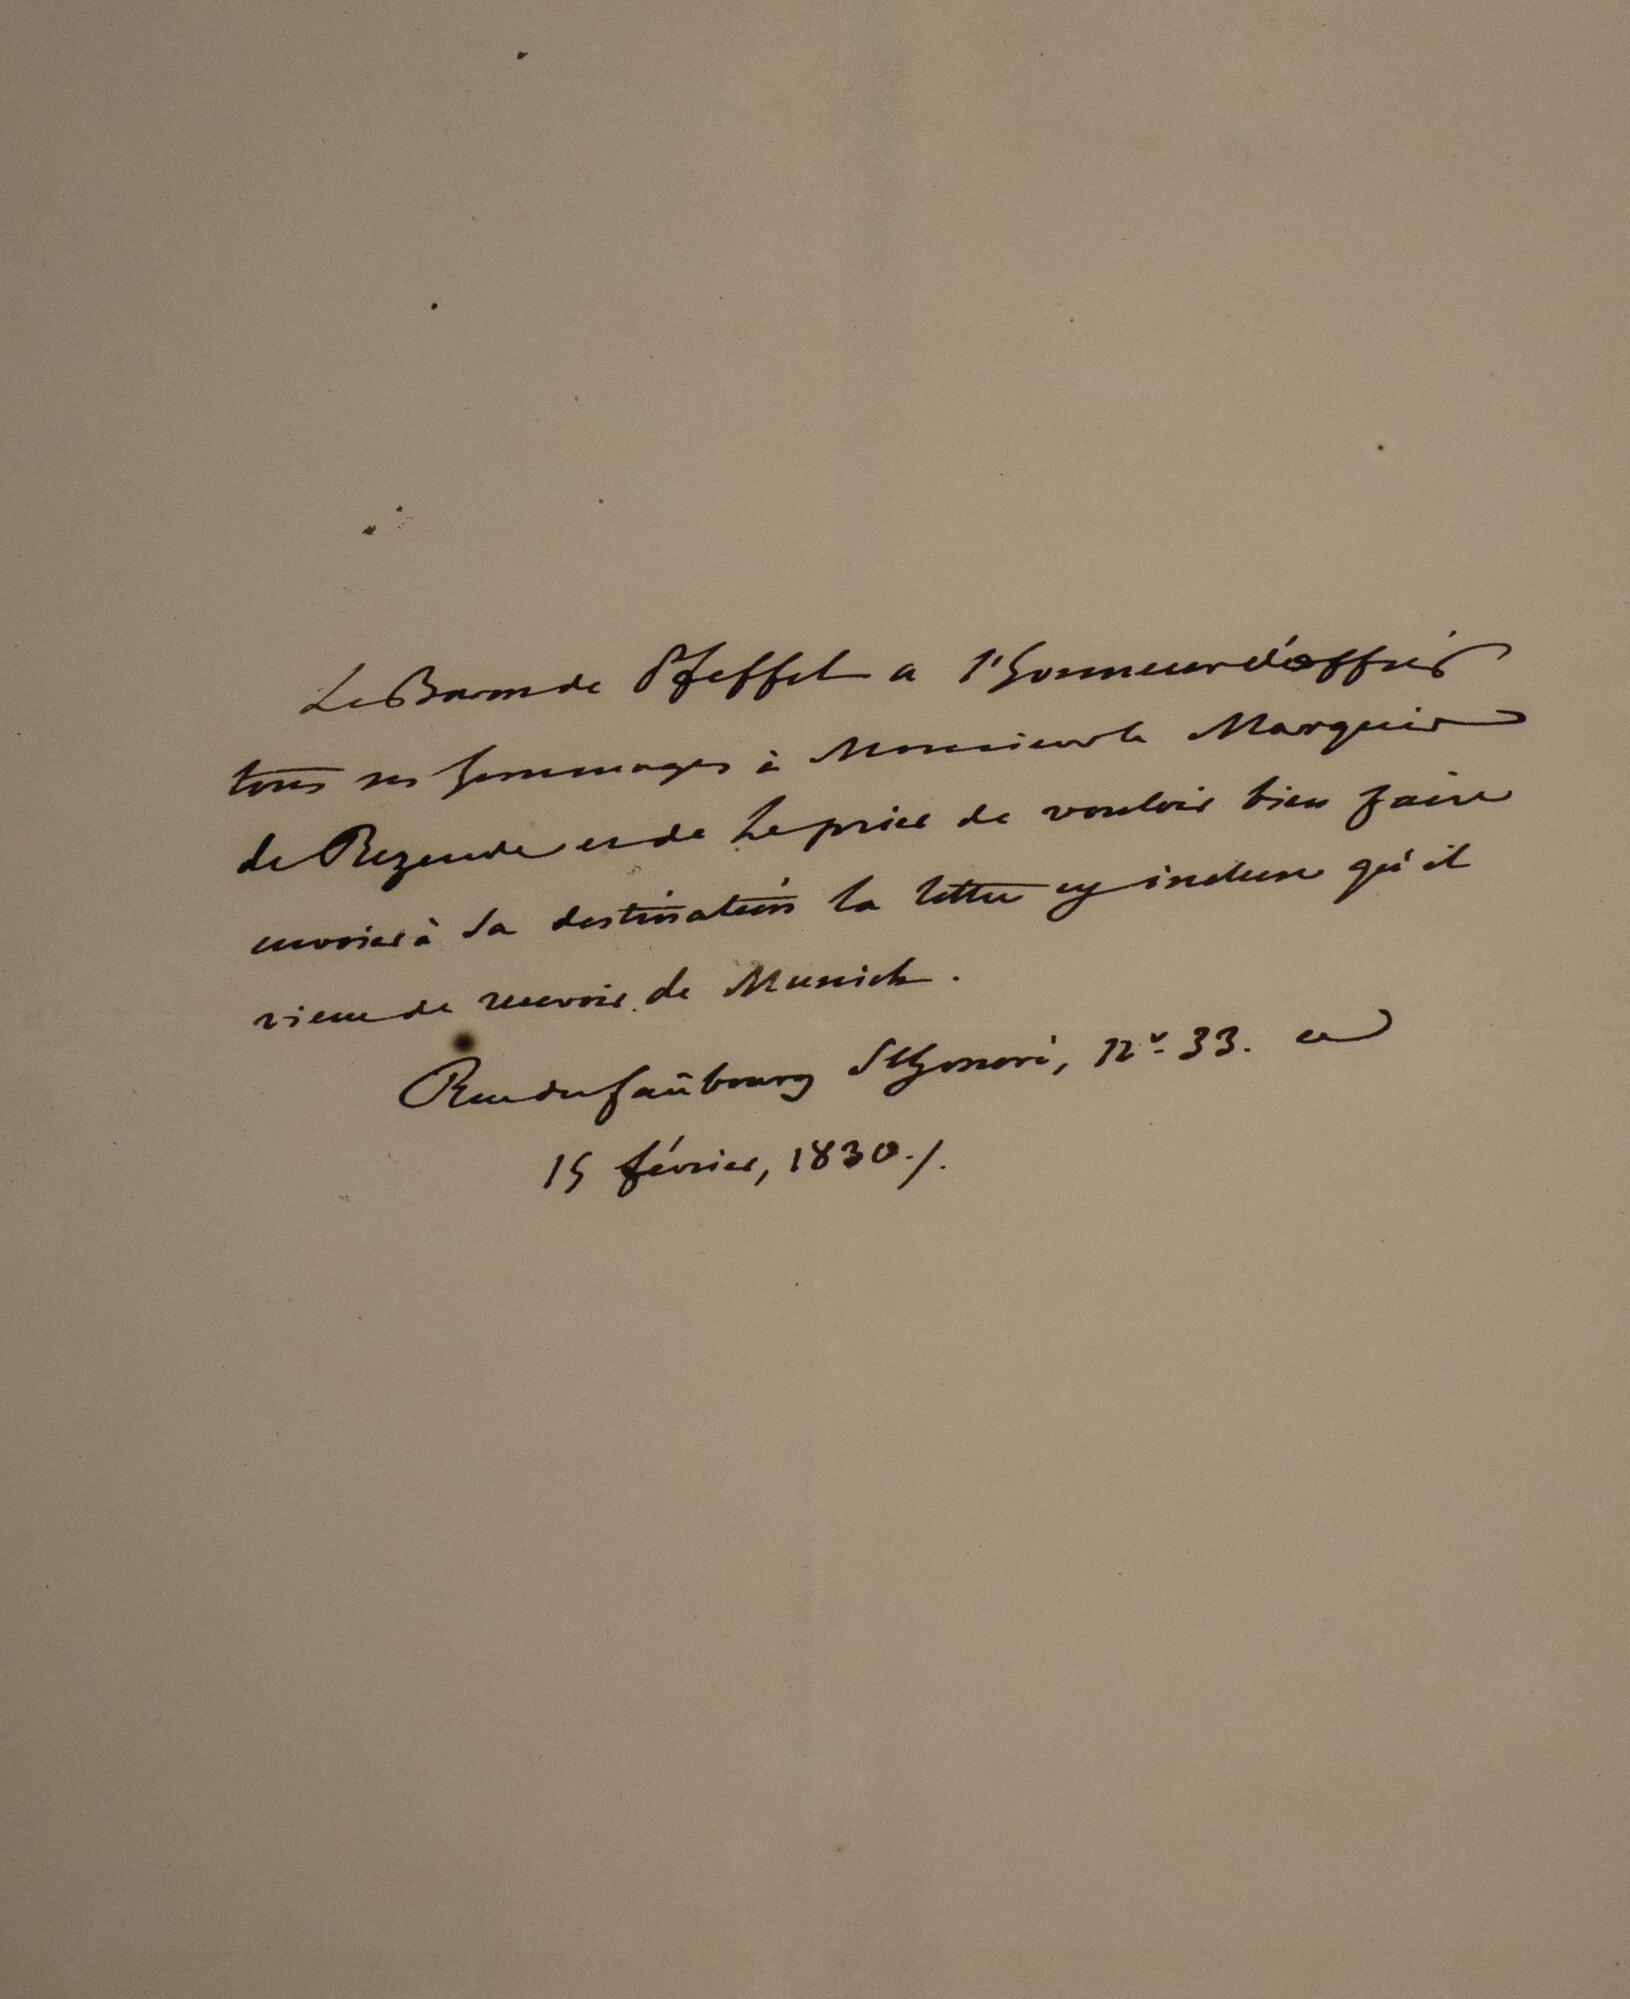 Le Baron de Pfeffel a l'honneur d'offrir
tous ses hommages à Monsieur le Marquis
de Rezende et de le prier de vouloir bien faire
envoier à sa destination la lettre cy incluse qu'il
vient de recevoir de Munich.
Rue du faubourg St honoré, No. 33. ce
15 février, 1830./.